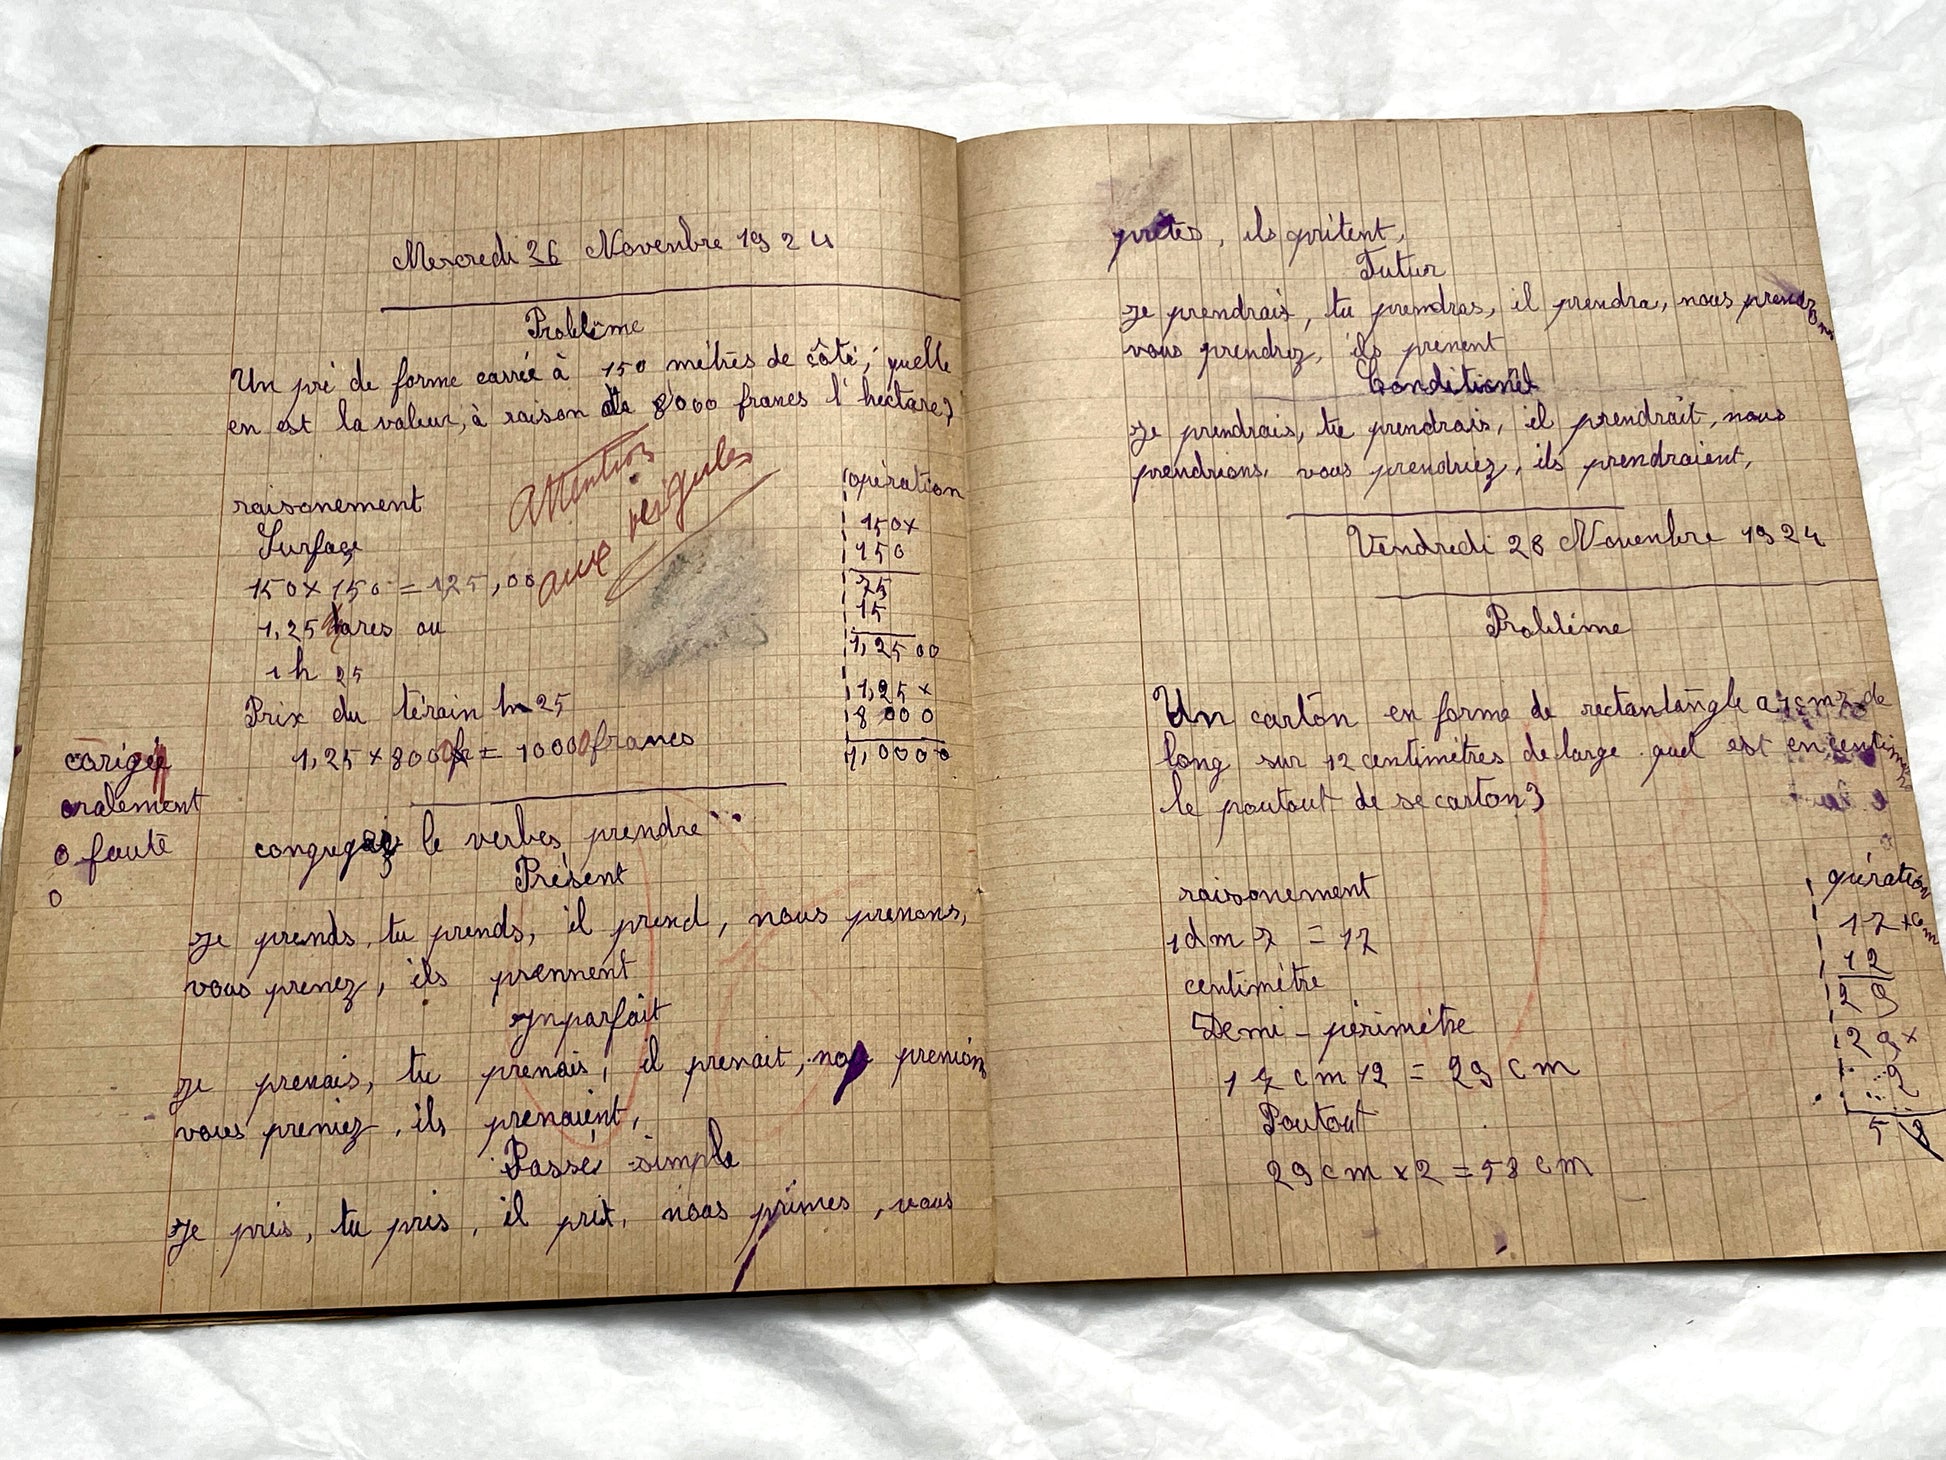 Mercredi 26 Novembre 1924
Problème
Un pré de forme carrée à 150 mètres de côté, quelle
en est la valeur, à raison de 8000 francs l'hectare?
Attention
aux virgules
raisonement
Surface
150 x 150 = 125,00
1,25 ares ou
1 h 25
Prix du térain h 25
1,25 x 8000 fr = 10000 francs
opération
150 x
150
75
15
1,2500
1,25 x
8 000
1,0000
corigée
oralement
0 faute
0
le verbes prendre
Présent
Je prends, tu prends, il prend, nous prenons,
vous prenez, ils prennent
Inparfait
Je prenais, tu prenais, il prenait, prenions
vous preniez, ils prenaient,
Passé simple
Je pris, tu pris, il prit, nous primes, vous
prites, ils pritent,
Futur
Je prendrais, tu prendras, il prendra, nous prendrons
vous prendrez, ils prenent
Conditionel
Je prendrais, tu prendrais, il prendrait, nous
prendrions, vous prendriez, ils prendraient,
Vendredi 28 Novembre 1924
Problème
Un carton en forme de rectantangle a de
long sur 12 centimètres de large quel est en
le poutout de se carton?
raisonement
1 dm 7 = 17
centimètre
Demi-périmètre
17 cm 12 = 29 cm
Poutout
29 cm x 2 = 58 cm
opération
17 x cm
12
29
29 x
2
58